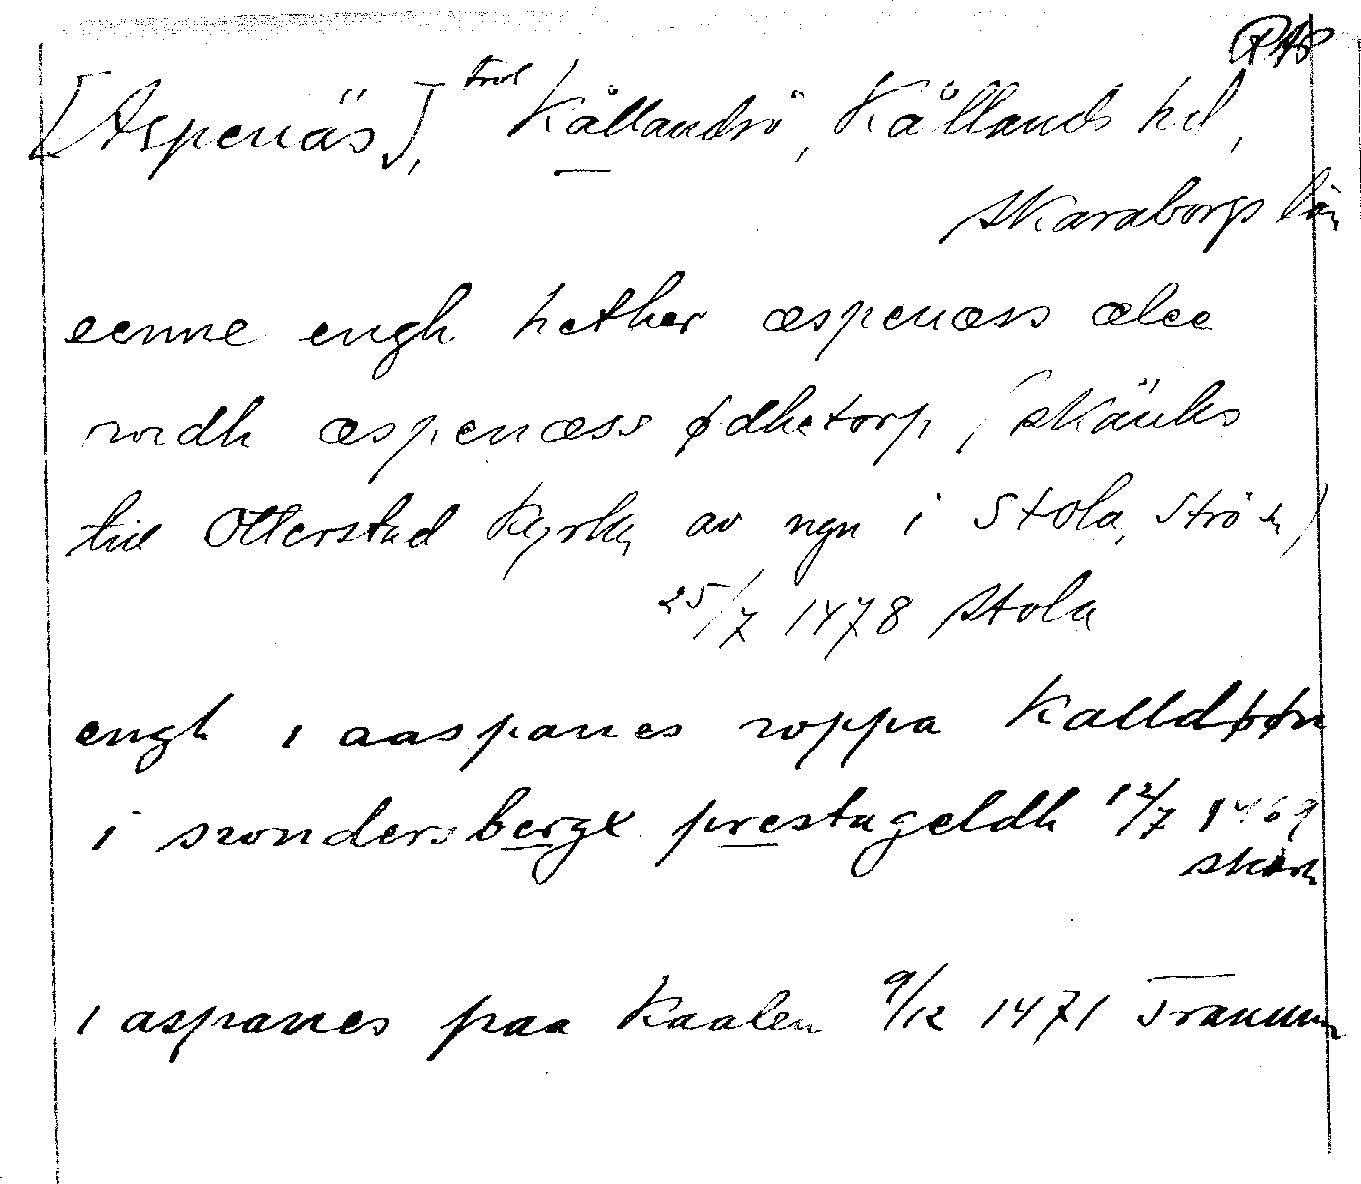 RAP
[Aspenäs], trol Kållandsö, Kållands hd,
Skaraborgs län
eenne engh hether æspenæss ælee
widh æspenæss ødhetorp, (skänks
till Otterstad kyrka av ngn i Stola, Strö sn)
25/7 1478 Stola
engh i aaspanes wppa Kalldøøn
i swndersbergx prestageldh 12/7 1469
Skara
i aspanes paa Kaalen 9/12 1471 Tranum